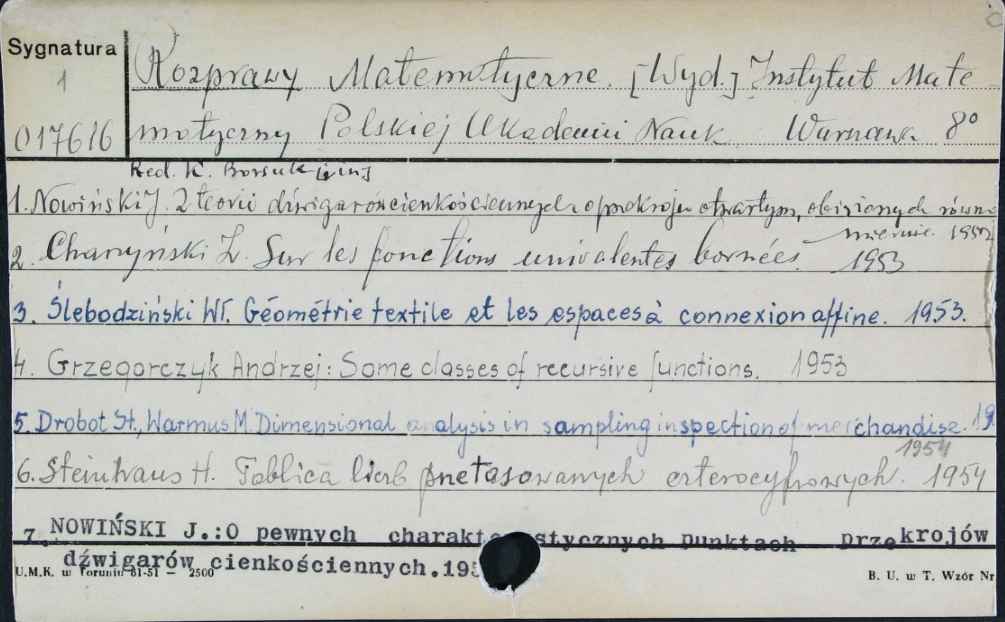 Sygnatura
1
017616
Rozprawy Matematyczne. [Wyd.] Instytut Mate-
matyczny Polskiej Akademii Nauk Warszawa 8°
Red. K. Borsuk [i in]
1. Nowiński J. Z teorii dźwigarów cienkościennych o przekroju otwartym, obciążonych równo
miernie. 1952
2. Charzyński Z. Sur les fonctions univalentes bornées. 1953
3. Ślebodziński Wł. Géométrie textile et les espaces à connexion affine. 1953.
4. Grzegorczyk Andrzej: Some classes of recursive functions. 1953
5. Drobot St., Warmus M. Dimensional analysis in sampling inspection of merchandise. 19
1954
6. Steinhaus H. Tablica liczb przetasowanych czterocyfrowych. 1954
7. NOWIŃSKI J.:O pewnych charakte stycznych punktach przekrojów
dźwigarów cienkościennych.195
U.M.K. w Toruniu 81-51 — 2500
B. U. w T. Wzór Nr